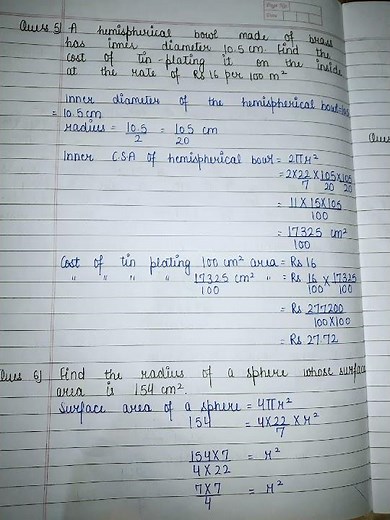 Ques 5) A hemispherical bowl made of brass
has inner diameter 10.5 cm. Find the
cost of tin-plating it on the inside
at the rate of Rs 16 per 100 m²
Inner diameter of the hemispherical bowl
= 10.5 cm
radius = 10.5/2 = 105/20 cm
Inner CSA of hemispherical bowl = 2πr²
= 2×22/7 × 105/20 × 105/20
= 11×15×105/100
= 17325/100 cm²
Cost of tin plating 100 cm² area = Rs 16
" " " " 17325/100 cm² " = Rs 16/100 × 17325/100
= Rs 277200/100×100
= Rs 27.72
Ques
Ques 6) Find the radius of a sphere whose surface
area is 154 cm².
Surface area of a sphere = 4πr²
154 = 4×22/7 × r²
154×7/4×22 = r²
7×7/4 = r²